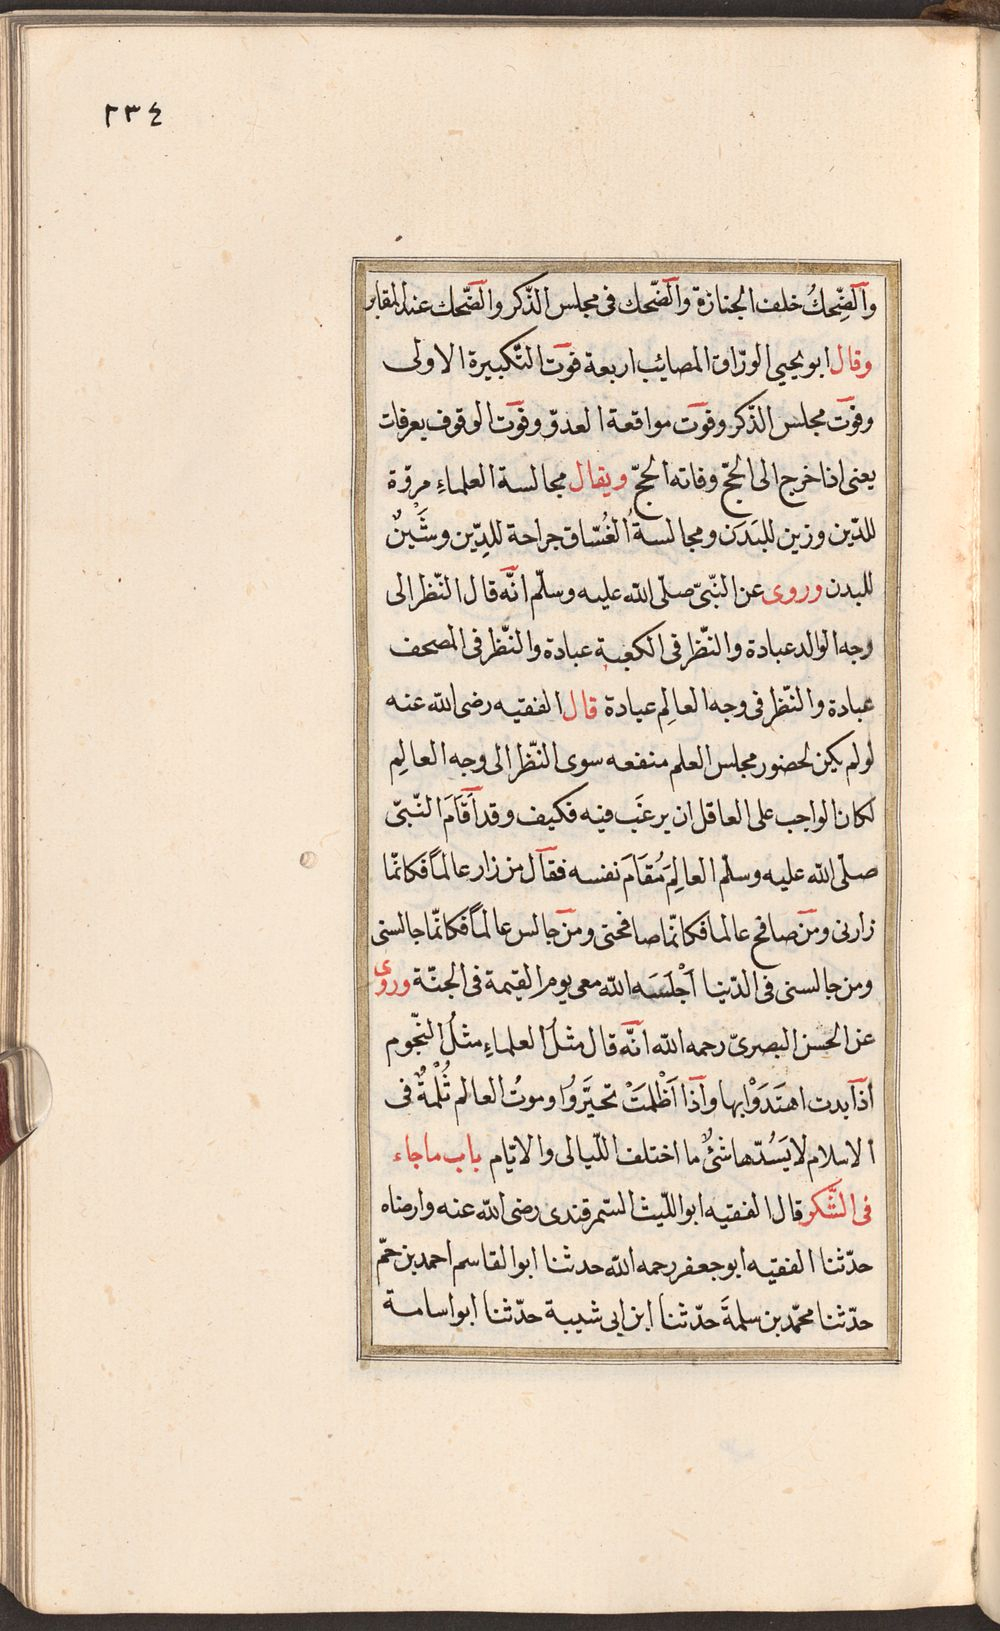 ٢٣٤
والضِّحكُ خلف الجنازة والضّحك فى مجلس الذّكر والضّحك عند المقابر
وقال ابو يحيى الورّاق المصائب اربعة فوت التّكبيرة الاولى
وفوت مجلس الذّكر وفوت مواقعة العدوّ وفوت الوقوف بعرفات
يعنى اذا خرج الى الحجّ وفاته الحجّ ويقال مجالسة العلماءِ مروّة
للدّين وزين للبَدَن ومجالسةُ الفُسّاق جراحة للدِّين وشَيْنٌ
للبدن وروى عن النّبىّ صلّى اللّه عليه وسلّم انّه قال النّظر الى
وجه الوالد عبادة والنّظر فى الكعبة عبادة والنّظر فى المصحف
عبادة والنّظر فى وجه العالِم عبادة قال الفقيه رضى اللّه عنه
لولم يكن لحضور مجلس العلم منفعه سوى النّظر الى وجه العالِم
لكان الواجب على العاقل ان يرغَب فيه فكيف وقد أَقَامَ النّبىّ
صلّى اللّه عليه وسلّم العالِمَ مُقَامَ نفسه فقال من زار عالمًا فكانّما
زارنى ومن صافح عالما فكانّما صافحنى ومن جالس عالمًا فكانّما جالسنى
ومن جالسنى فى الدّنيا أَجْلَسَه اللّه معى يوم القيمة فى الجنّة وروى
عن الحسن البصرىّ رحمه اللّه انّه قال مثلُ العلماءِ مثلُ النّجوم
اذا بدت اهتَدَوْا بها واذا اَظْلمَتْ تحيَّروُا وموتُ العالم ثُلْمَةٌ فى
الاسلام لا يَسُدّها شئٌ ما اختلف اللّيالى والايّام باب ما جاء
فى الشّكر قال الفقيه ابو اللّيث السّمرقندى رضى اللّه عنه وارضاه
حدّثنا الفقيه ابو جعفر رحمه اللّه حدثنا ابو القاسم احمد بن حمّ
حدّثنا محمّد بن سلمةَ حدّثنا ابن ابى شيبة حدّثنا ابو اسامة